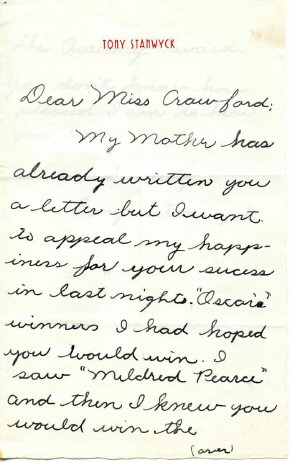 TONY STANWYCK
Dear Miss Crawford;
My Mother has
already written you
a letter but I want
to appeal my happ-
iness for your sucess
in last nights "Oscars"
winners I had hoped
you would win. I
saw "Mildred Pearce"
and then I knew you
would win the
(over)